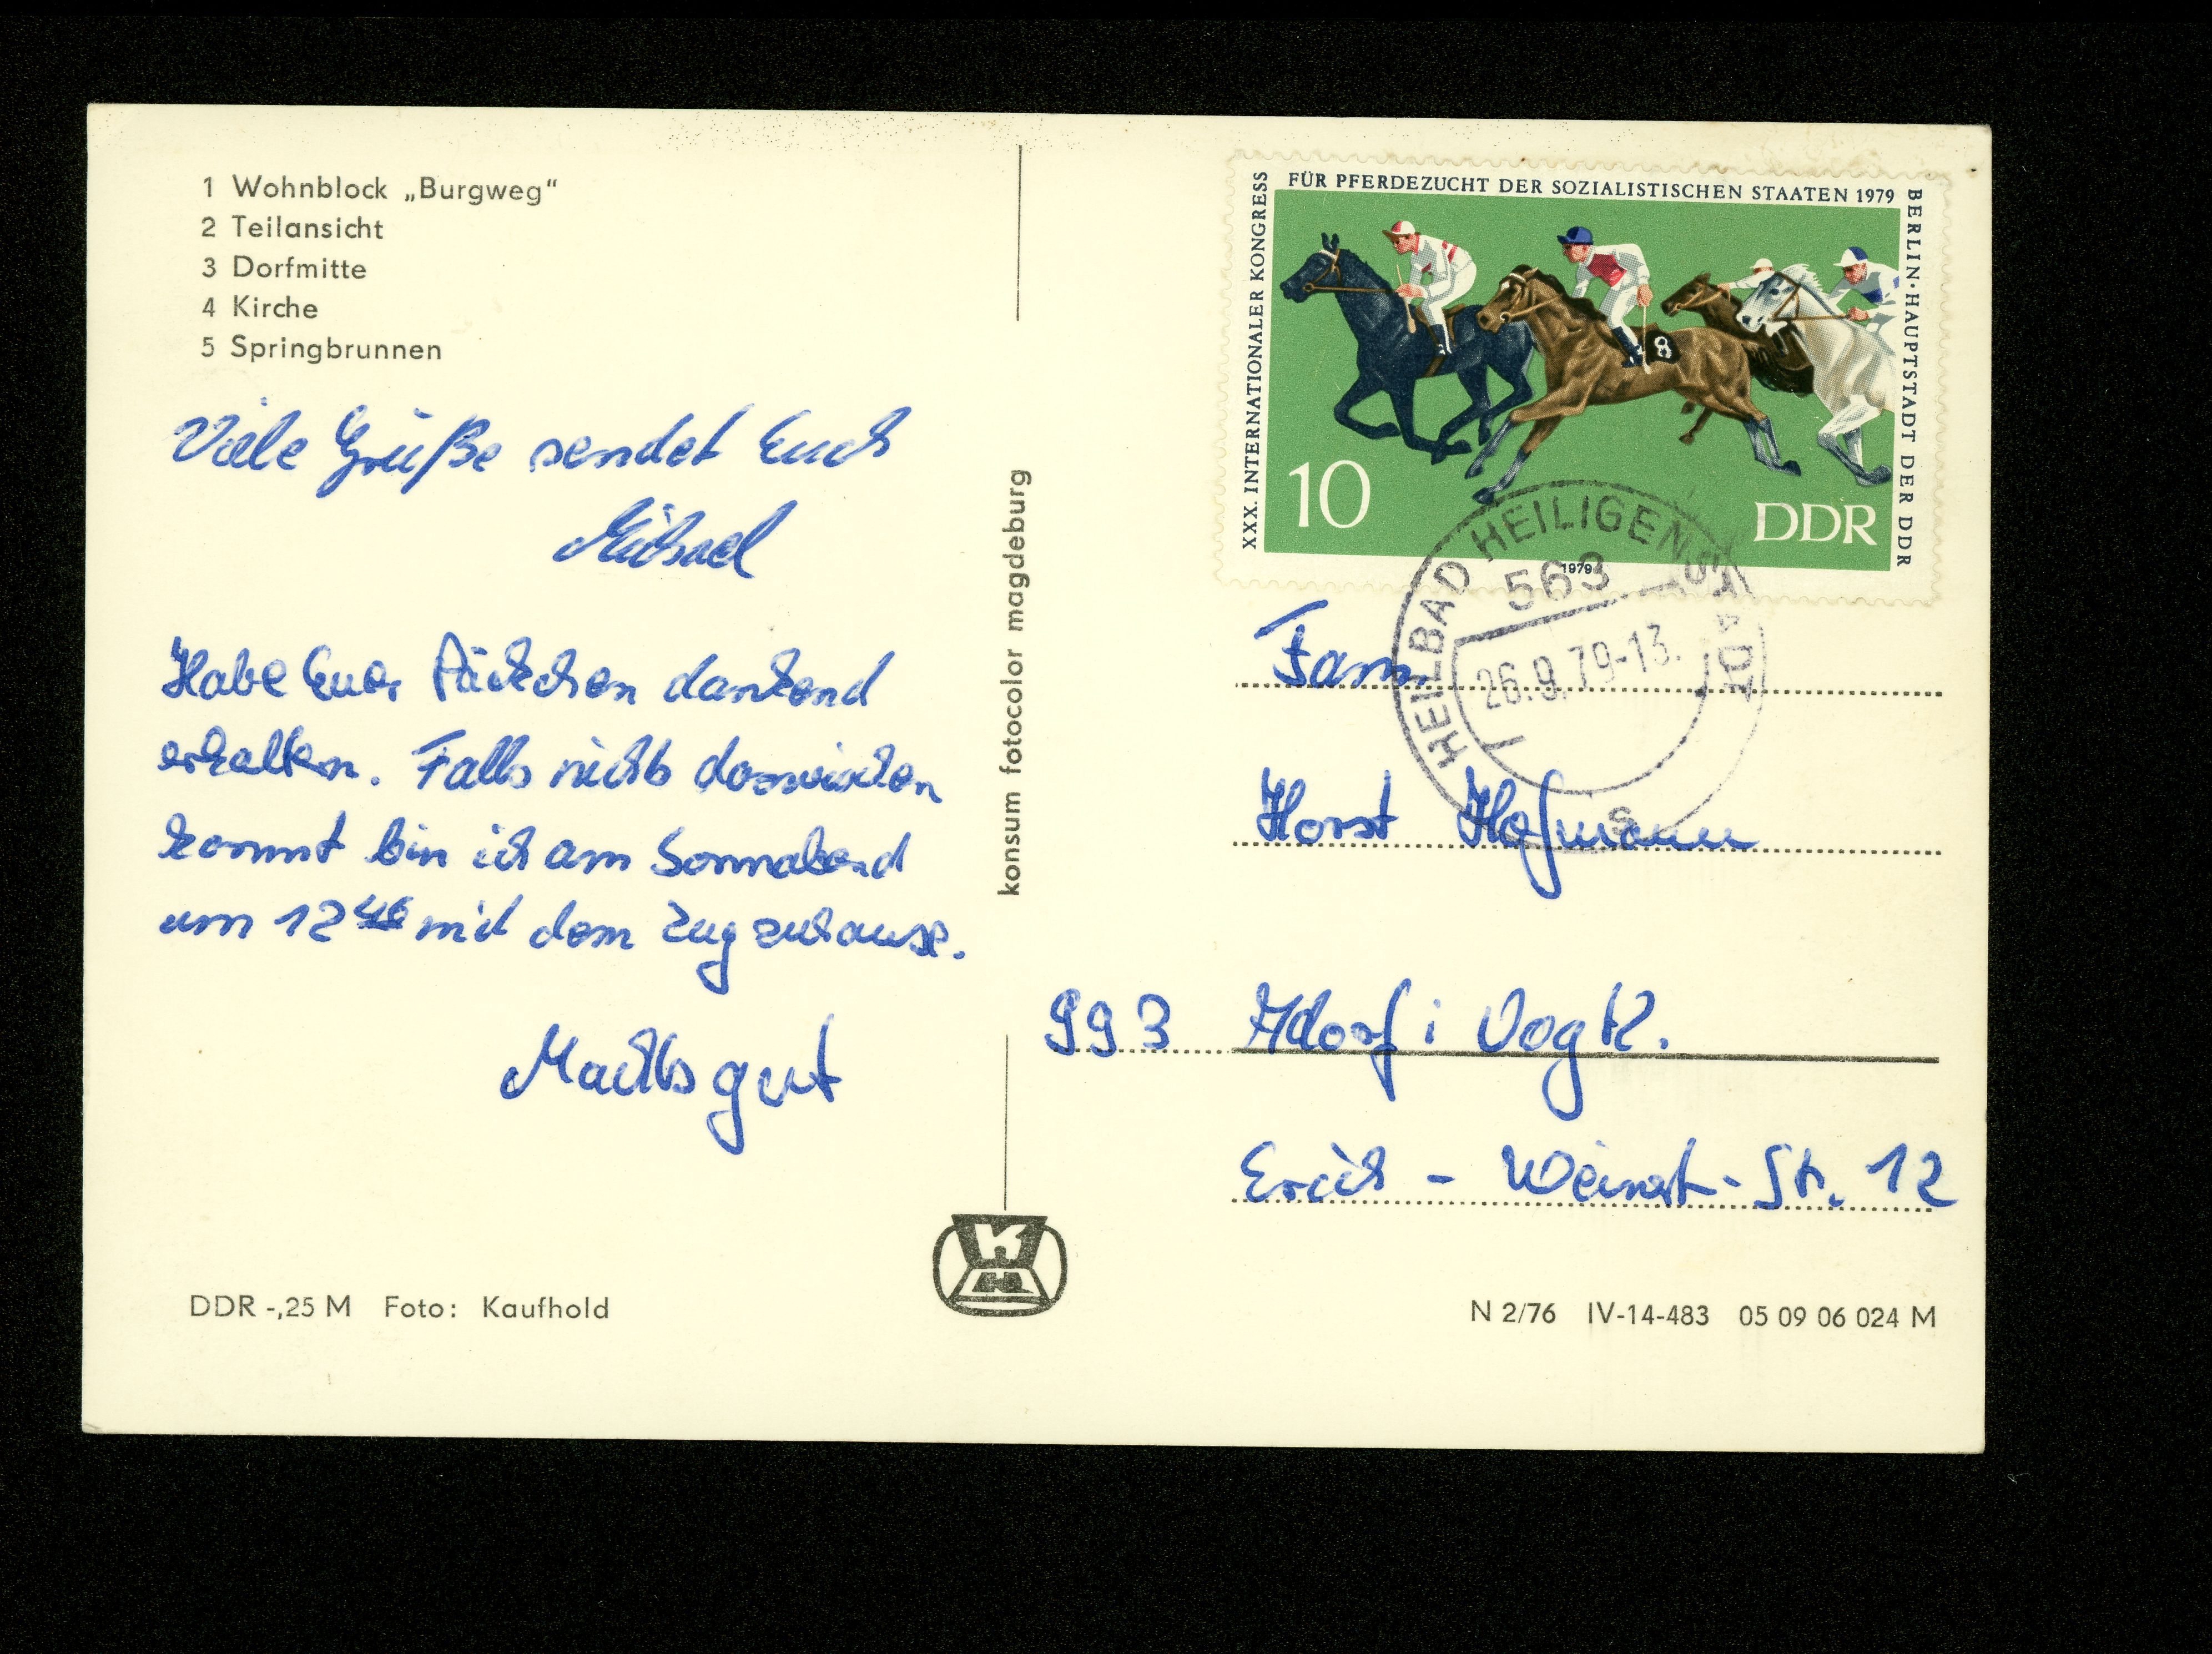 1 Wohnblock „Burgweg“
2 Teilansicht
3 Dorfmitte
4 Kirche
5 Springbrunnen
Viele Grüße sendet Euch
Michael
Habe Euer Päckchen dankend
erhalten. Falls nichts dazwischen
kommt bin ich am Sonnabend
um 12 46 mit dem Zug zuhause.
Machts gut
DDR -,25 M Foto: Kaufhold
konsum fotocolor magdeburg
XXX. INTERNATIONALER KONGRESS
FÜR PFERDEZUCHT DER SOZIALISTISCHEN STAATEN 1979
BERLIN · HAUPTSTADT DER DDR
8
10
DDR
1979
HEILBAD HEILIGENSTADT
563
26.9.79-13.
s
Fam.
Horst Hofmann
993 Adorf i Vogtl.
Erich - Weinert - Str. 12
N 2/76 IV-14-483 05 09 06 024 M